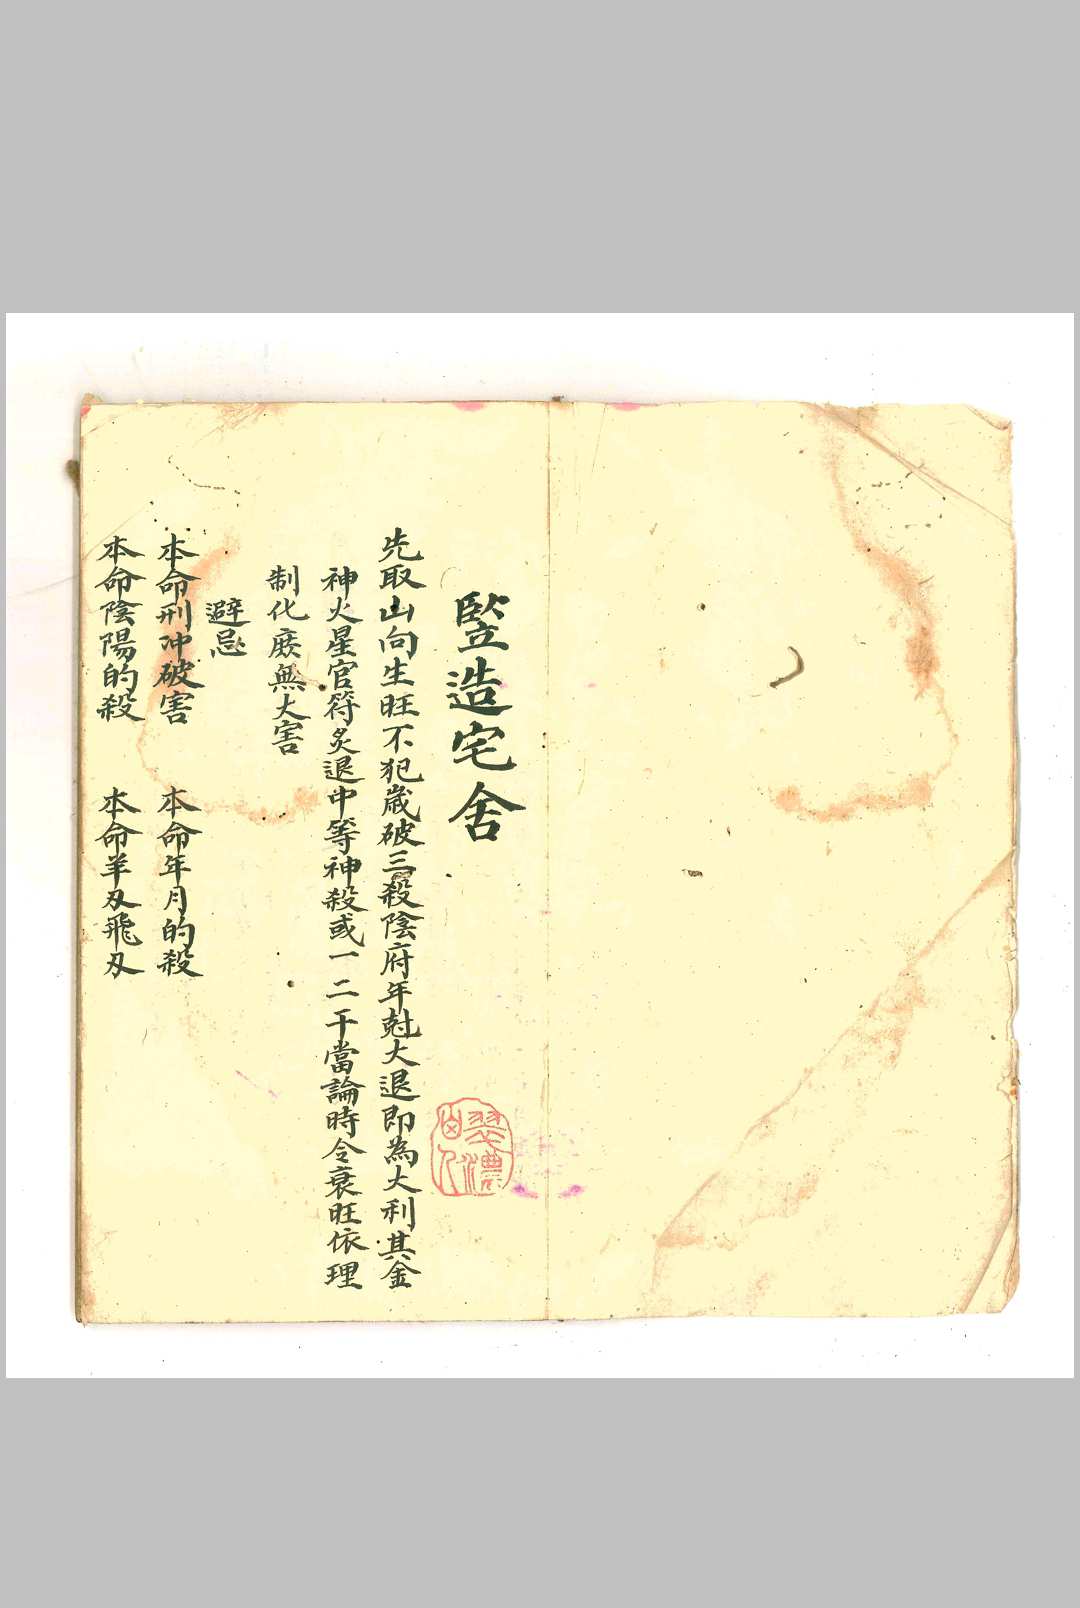 竪造宅舍
先取山向生旺不犯歲破三殺陰府年尅大退即為大利其金
神火星官符炙退中等神殺或一二干當論時令衰旺依理
制化庶無大害
避忌
本命刑冲破害 本命年月的殺
本命陰陽的殺 本命羊刄飛刄